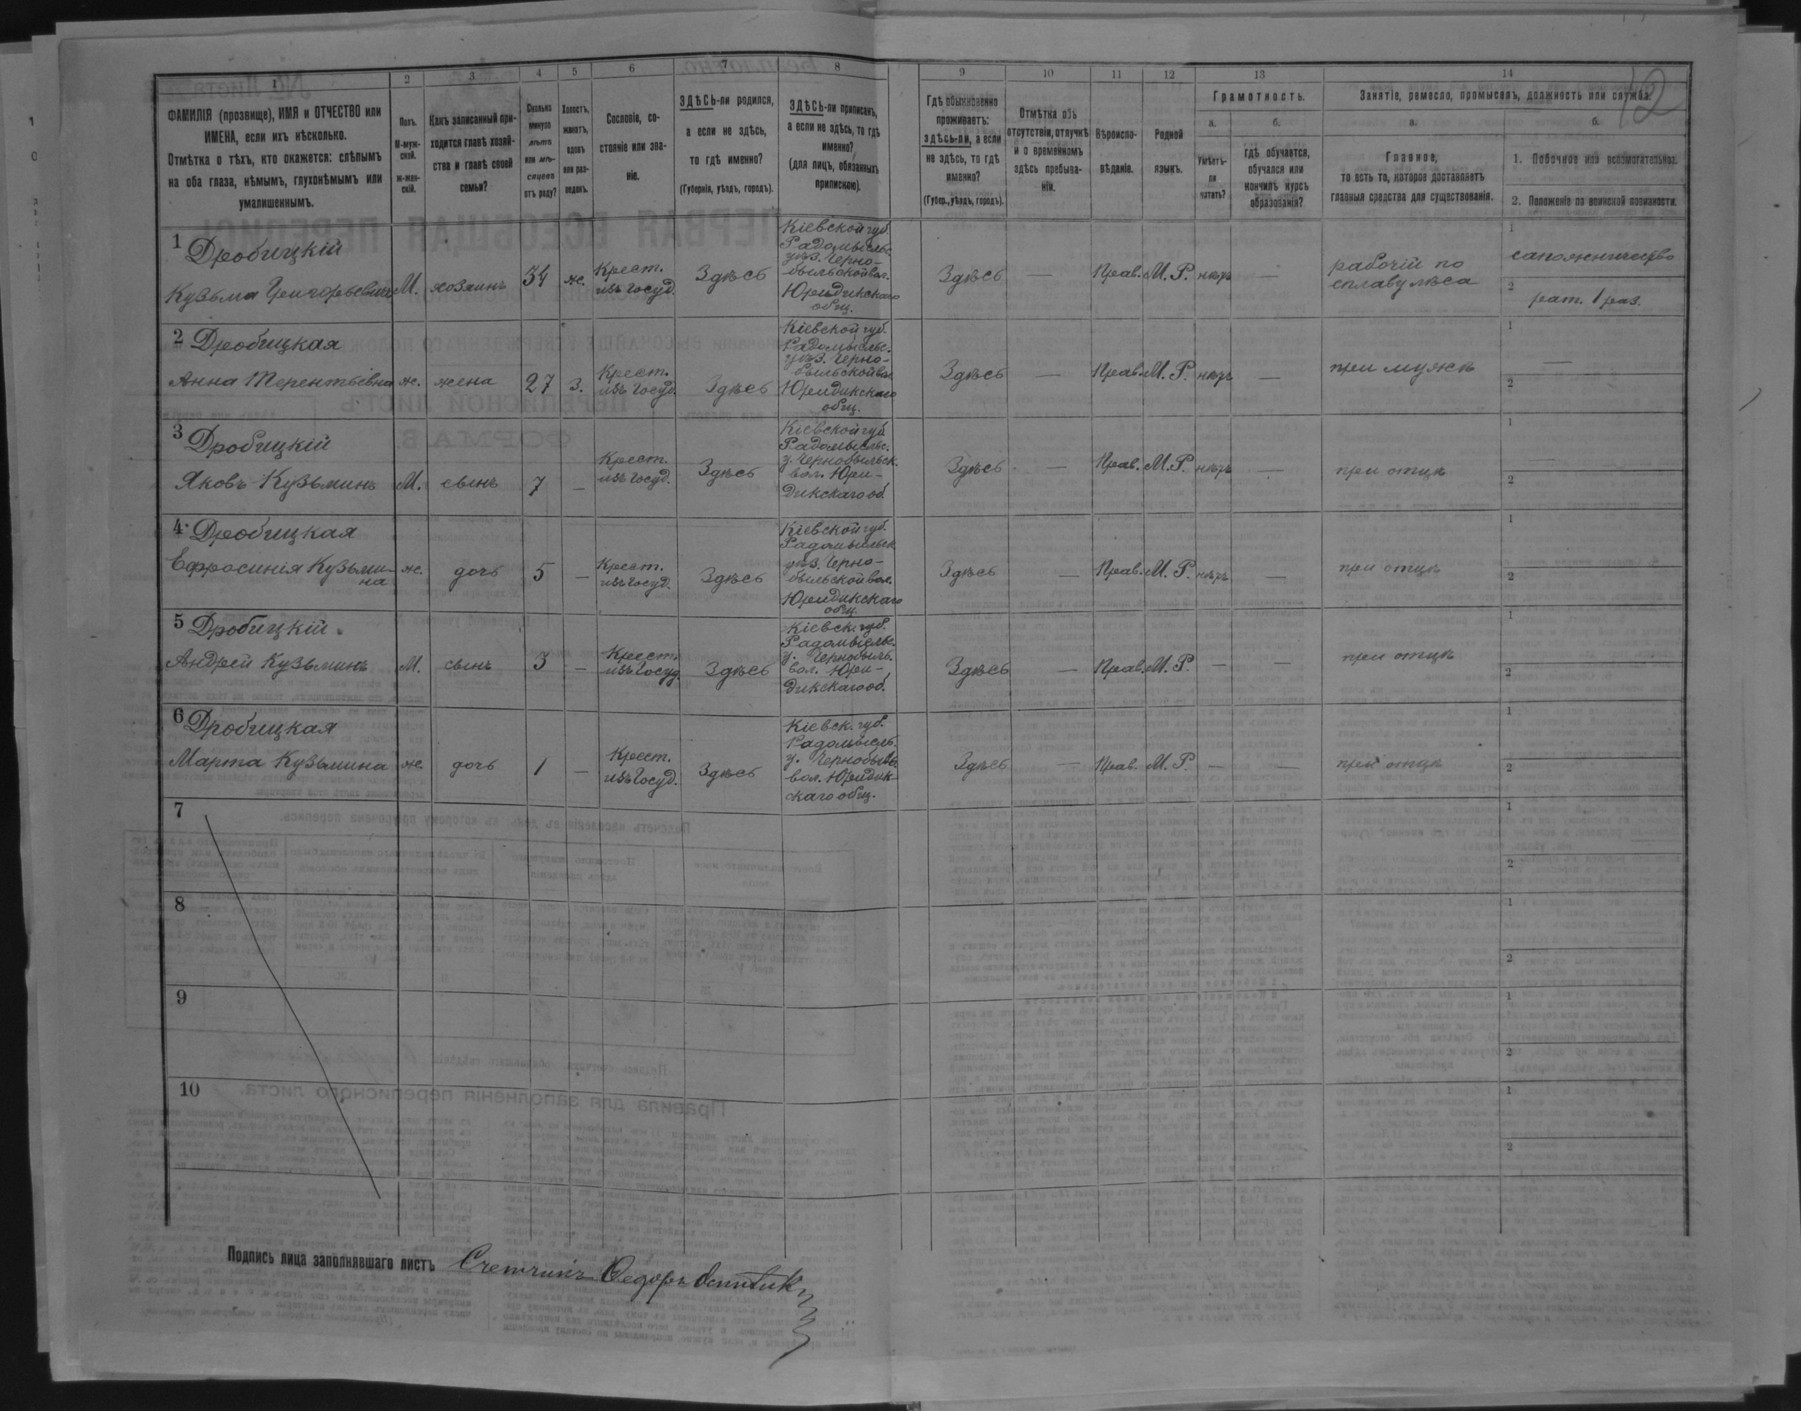 1 2 3 4 5 6 7 8 9 10 11 12 13 14
12
ФАМИЛІЯ (прозвище), ИМЯ и ОТЧЕСТВО или
ИМЕНА, если ихъ нѣсколько.
Отмѣтка о тѣхъ, кто окажется: слѣпымъ
на оба глаза, нѣмымъ, глухонѣмымъ или
умалишеннымъ.
Полъ.
М-муж-
ской.
ж-жен-
скій.
Какъ записанный при-
ходится главѣ хозяй-
ства и главѣ своей
семьи?
Сколько
минуло
лѣтъ
или мѣ-
сяцевъ
отъ роду?
Холостъ,
женатъ,
вдовъ
или раз-
веденъ.
Сословіе, со-
стояніе или зва-
ніе.
ЗДѢСЬ-ли родился,
а если не здѣсь,
то гдѣ именно?
(Губернія, уѣздъ, городъ).
ЗДѢСЬ-ли приписанъ,
а если не здѣсь, то гдѣ
именно?
(для лицъ, обязанныхъ
припискою).
Гдѣ обыкновенно
проживаетъ:
здѣсь-ли, а если
не здѣсь, то гдѣ
именно?
(Губер., уѣздъ, городъ).
Отмѣтка объ
отсутствіи, отлучкѣ
и о временномъ
здѣсь пребыва-
ніи.
Вѣроиспо-
вѣданіе.
Родной
языкъ.
Грамотность.
а.
Умѣетъ-
ли
читать?
б.
гдѣ обучается,
обучался или
кончилъ курсъ
образованія?
Занятіе, ремесло, промыселъ, должность или служба.
а.
Главное,
то есть то, которое доставляетъ
главныя средства для существованія.
б.
1. Побочное или вспомогательное.
2. Положеніе по воинской повинности.
1 Дробицкій
Кузьма Григорьевичъ
М.
хозяинъ
34
ж.
Крест.
изъ госуд.
Здѣсь
Кіевской губ.
Радомысльс.
уѣз. Черно-
быльской вол.
Юридикскаго
общ.
Здѣсь
—
Прав.
М. Р.
нѣтъ
—
рабочій по
сплаву лѣса
1
сапожничество
2
рат. 1 раз.
2 Дробицкая
Анна Терентьевна
ж.
жена
27
з.
Крест.
изъ госуд.
Здѣсь
Кіевской губ.
Радомысльс.
уѣз. Черно-
быльской вол.
Юридикскаго
общ.
Здѣсь
—
Прав.
М. Р.
нѣтъ
—
при мужѣ
1
—
2
3 Дробицкій
Яковъ Кузьминъ
М.
сынъ
7
—
Крест.
изъ госуд.
Здѣсь
Кіевской губ.
Радомысльс.
у. Чернобыльск.
вол. Юри-
дикскаго об.
Здѣсь
—
Прав.
М. Р.
нѣтъ
—
при отцѣ
1
2
4. Дробицкая
Ефросинія Кузьми-
на
ж.
дочь
5
—
Крест.
изъ госуд.
Здѣсь
Кіевской губ.
Радомысльск.
уѣз. Черно-
быльской вол.
Юридикскаго
общ.
Здѣсь
—
Прав.
М. Р.
нѣтъ
—
при отцѣ
1
2
5 Дробицкій
Андрей Кузьминъ
М.
сынъ
3
—
Крест.
изъ госуд.
Здѣсь
Кіевск. губ.
Радомысльс.
у. Чернобыль.
вол. Юри-
дикскаго об.
Здѣсь
—
Прав.
М. Р.
—
—
при отцѣ
1
2
6 Дробицкая
Марта Кузьмина
ж.
дочь
1
—
Крест.
изъ госуд.
Здѣсь
Кіевск. губ.
Радомысль.
у. Чернобыль
вол. Юридик-
скаго общ.
Здѣсь
—
Прав.
М. Р.
—
—
при отцѣ
1
2
7
1
2
8
1
2
9
1
2
10
1
2
Подпись лица заполнявшаго листъ Счетчикъ Федоръ